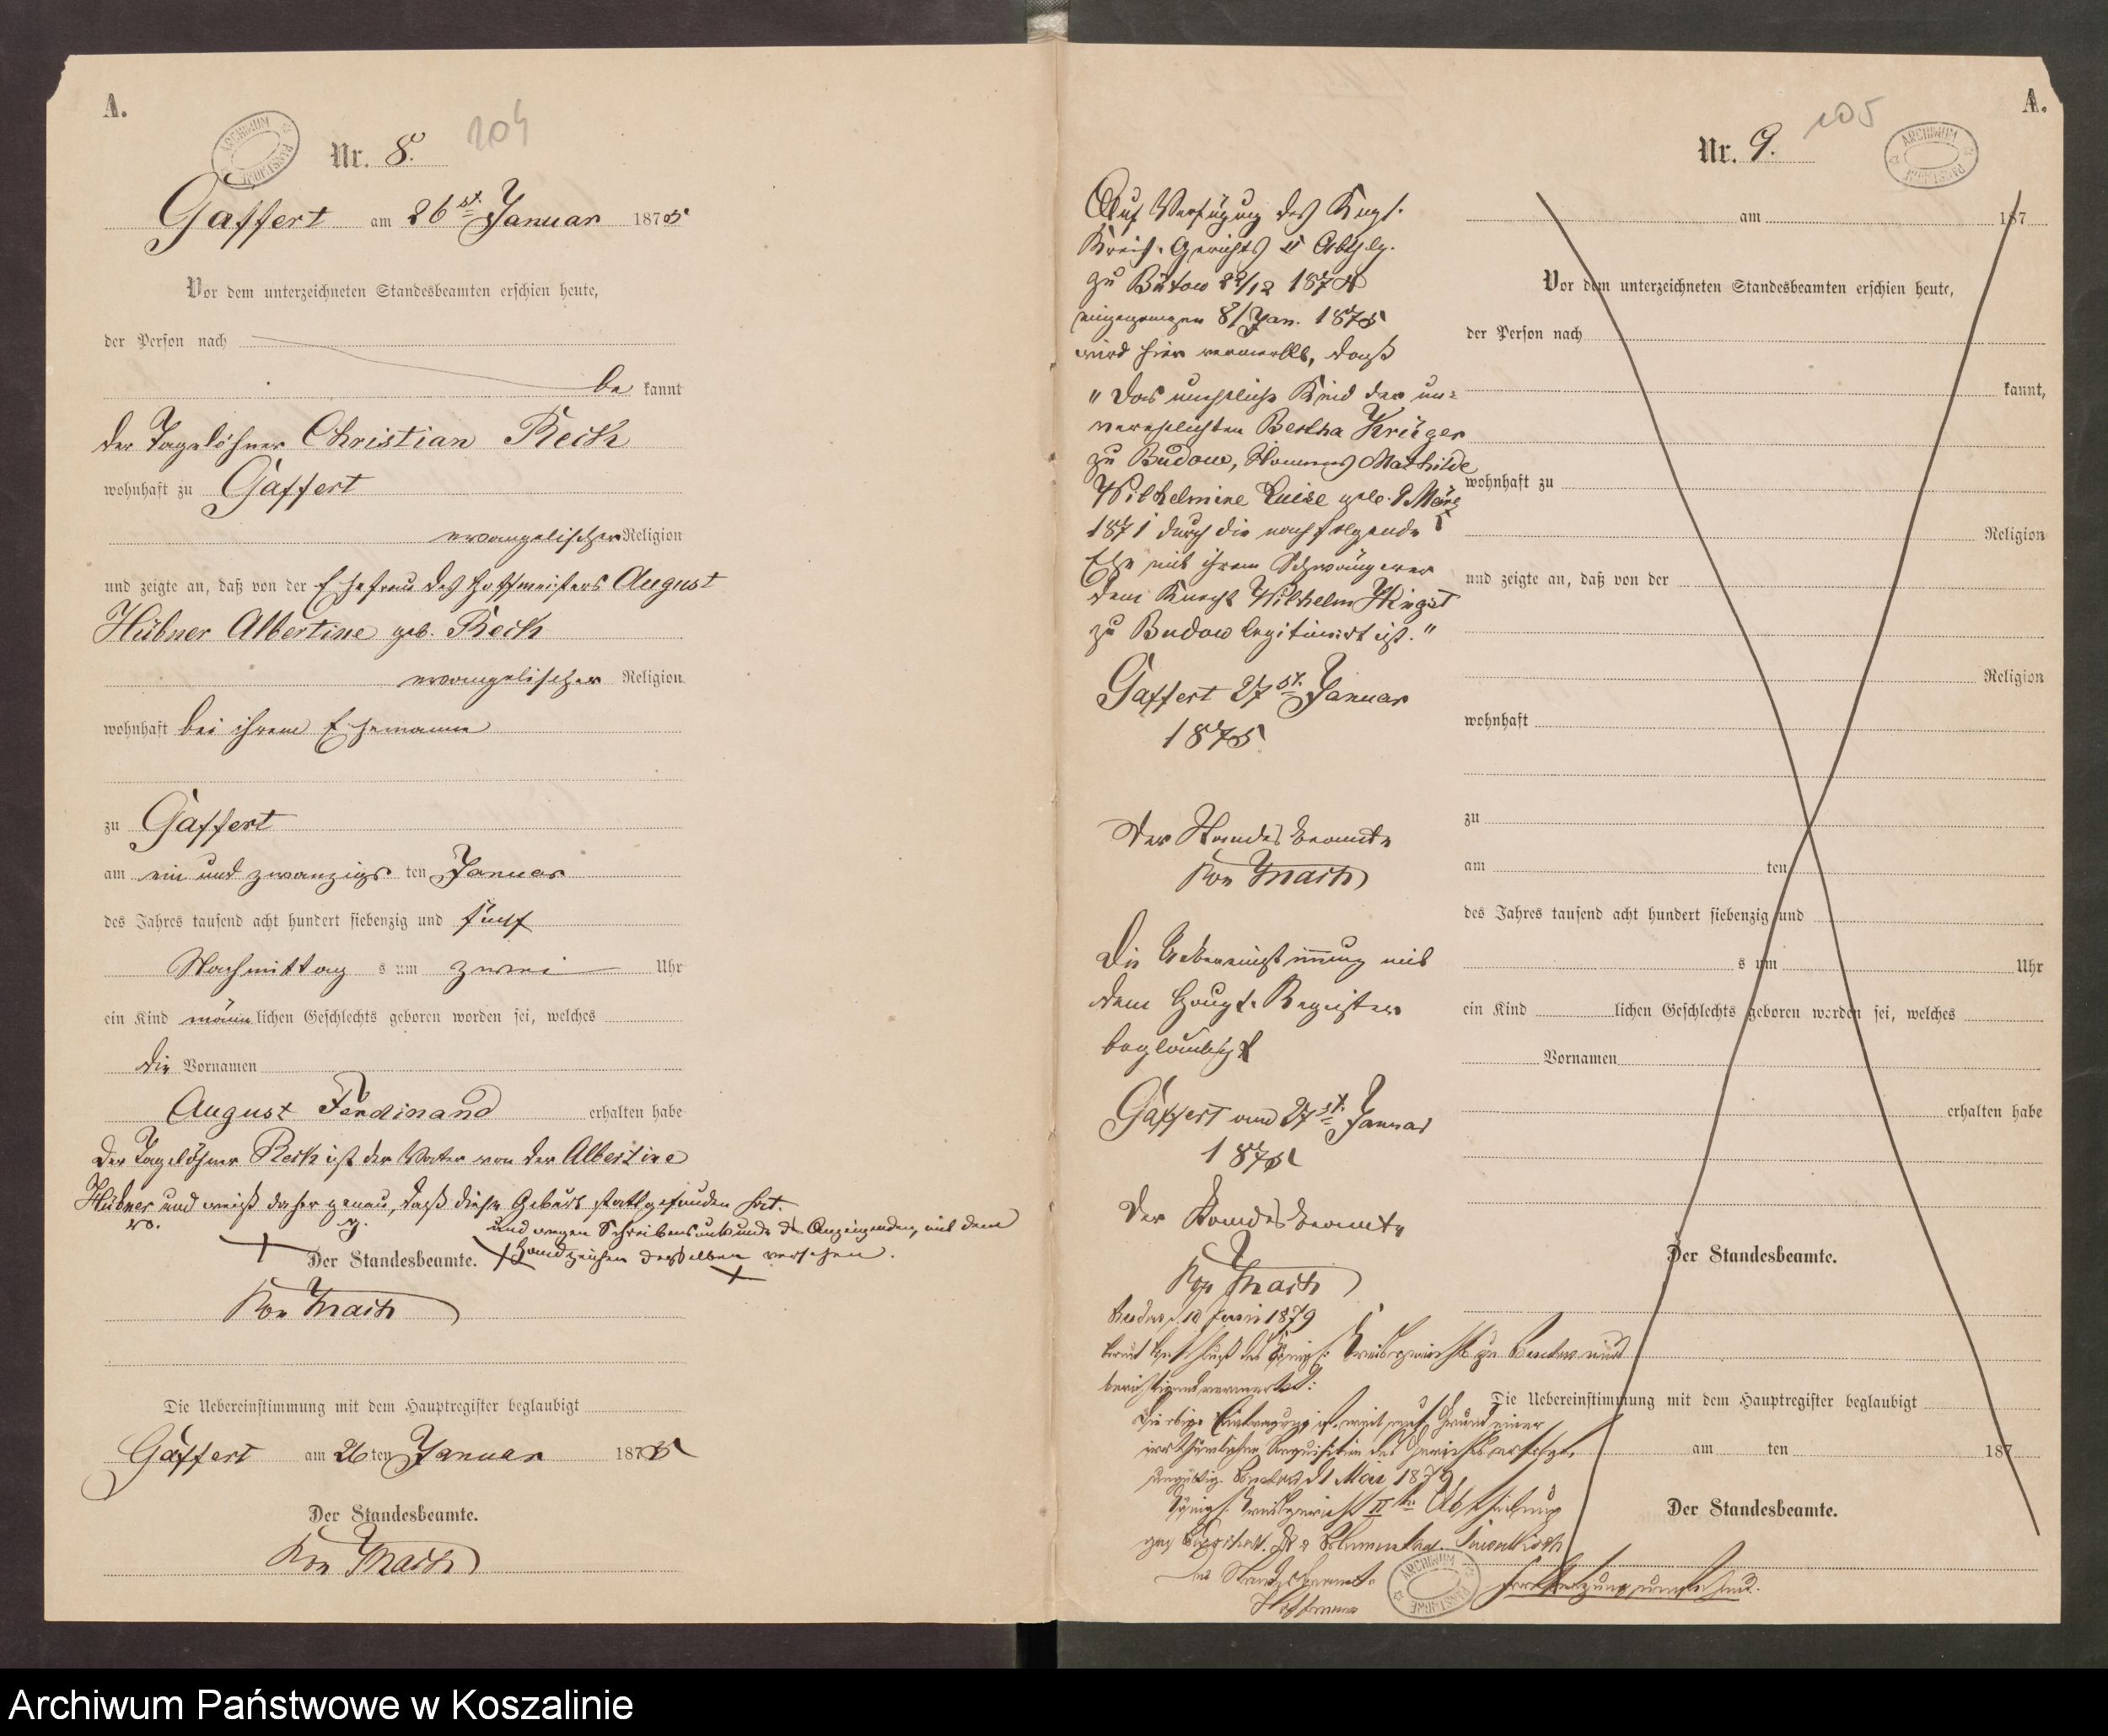 A.
ARCHIWUM PAŃSTWOWE
Nr. 8. 104
Gaffert am 26st. Januar 1875
Vor dem unterzeichneten Standesbeamten erschien heute,
der Person nach
be kannt
der Tagelöhner Christian Reck
wohnhaft zu Gaffert
evangelischer Religion
und zeigte an, daß von der Ehefrau des Hoffmeisters August
Hübner Albertine geb. Reck
evangelischer Religion
wohnhaft bei ihrem Ehemann
zu Gaffert
am ein und zwanzigs ten Januar
des Jahres tausend acht hundert siebenzig und fünf
Nachmittag s um zwei Uhr
ein Kind männlichen Geschlechts geboren worden sei, welches
die Vornamen
August Ferdinand erhalten habe
Der Tagelöhner Reck ist der Vater von der Albertine
Hübner und weiß daher genau, daß diese Geburt stattgefunden hat.
v. g. und wegen Schreibensunkunde des Anzeigenden, mit dem
Der Standesbeamte. Handzeichen desselben versehen.
Von Mach
Die Uebereinstimmung mit dem Hauptregister beglaubigt
Gaffert am 26ten Januar 1875
Der Standesbeamte.
Von Mach
A.
Nr. 9. 105
ARCHIWUM PAŃSTWOWE
Auf Verfügung des Kngl.
Kreis-Gerichts II Abthlg.
zu Bütow 22/12 1874
eingegangen 8/Jan. 1875
wird hier vermerkt, daß
"Das uneheliche Kind der un-
verehelichten Bertha Krüger
zu Budow, Namens Mathilde
Wilhelmine Luise geb. 9 März
1871 durch die nachfolgende
Ehe mit ihrem Schwängerer
dem Knecht Wilhelm Hingst
zu Budow legitimirt ist."
Gaffert 27st. Januar
1875
Der Standesbeamte
Von Mach
Die Uebereinstimmung mit
dem Haupt-Register
beglaubigt
Gaffert am 27st. Januar
1875
Der Standesbeamte
Von Mach
1879
berichtigend vermerkt:
Die obige Eintragung ist, weil auf Grund einer
irrthümlichen Requisition des Gerichts erfolgt,
ungültig. Mai 1879,
Königl. Kreisgericht II te Abtheilung
Der Standesbeamte
am 187
Vor dem unterzeichneten Standesbeamten erschien heute,
der Person nach
kannt,
wohnhaft zu
Religion
und zeigte an, daß von der
Religion
wohnhaft
zu
am ten
des Jahres tausend acht hundert siebenzig und
s um Uhr
ein Kind lichen Geschlechts geboren worden sei, welches
Vornamen
erhalten habe
Der Standesbeamte.
Die Uebereinstimmung mit dem Hauptregister beglaubigt
am ten 187
Der Standesbeamte.
ARCHIWUM PAŃSTWOWE
Archiwum Państwowe w Koszalinie